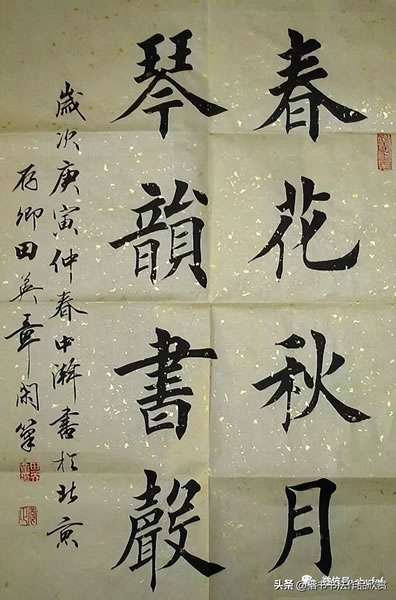 春花秋月
琴韻書聲
歲次庚寅仲春中澣書於北京
存卿田英章閑筆
头条 @楷书书法作品欣赏